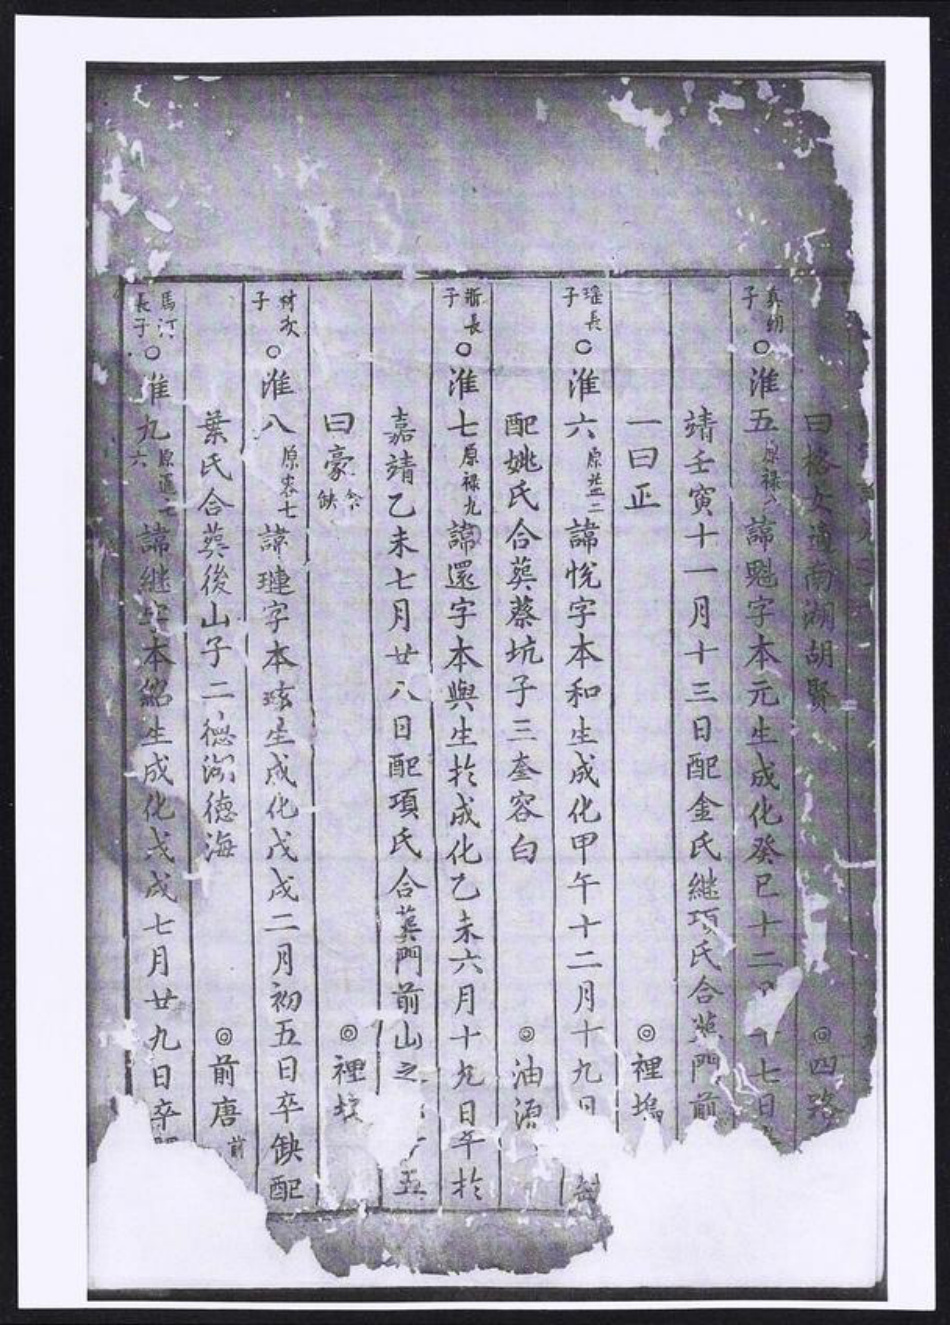 曰格女適南湖胡賢 ◎四路
子 ○淮五原祿八諱魁字本元生成化癸巳十二 十七日
靖壬寅十一月十三日配金氏繼項氏合葬門前
一曰正 ◎裡塢
瑤長子 ○淮六原 二諱悅字本和生成化甲午十二月十九日
配姚氏合葬蔡坑子三奎容白 ◎油源
長子 ○淮七原祿九諱還字本與生於成化乙未六月十九日卒於
嘉靖乙未七月廿八日配項氏合葬門前山之 五
曰豪缺 ◎裡
次子 ○淮八原 七諱璉字本 生成化戊戌二月初五日卒缺配
葉氏合葬後山子二德 德海 ◎前唐前
馬汀長子 ○淮九六原 諱繼宗本紹生成化戊戌七月廿九日卒